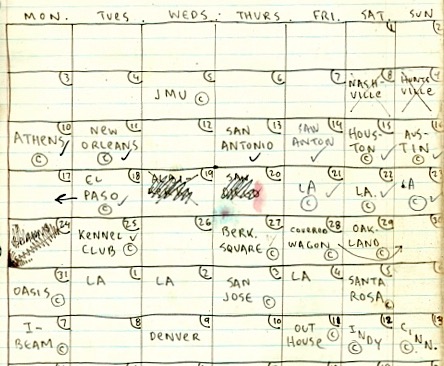 MON. TUES. WEDS. THURS. FRI. SAT. SUN
1 2
3 4 5 6 7 8
JMU © NASH-VILLE HUNTSVILLE
10 11 12 13 14 15 16
ATHENS © NEW ORLEANS © SAN ANTONIO SAN ANTON HOUSTON © AUSTIN ©
17 18 19 20 21 22 23
EL PASO © LA © LA. © LA ©
24 25 26 27 28 29
KENNEL CLUB © BERK. SQUARE © COVERED WAGON © OAKLAND ©
31 1 2 3 4 5
OASIS © LA LA SAN JOSE © LA SANTA ROSA ©
7 8 9 10 11 12 13
I-BEAM © DENVER OUT HOUSE © INDY © CINN. ©